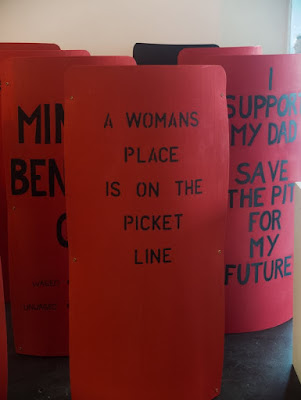 A WOMANS
PLACE
IS ON THE
PICKET
LINE
I
SUPPORT
MY DAD
SAVE
THE PIT
FOR
MY
FUTURE